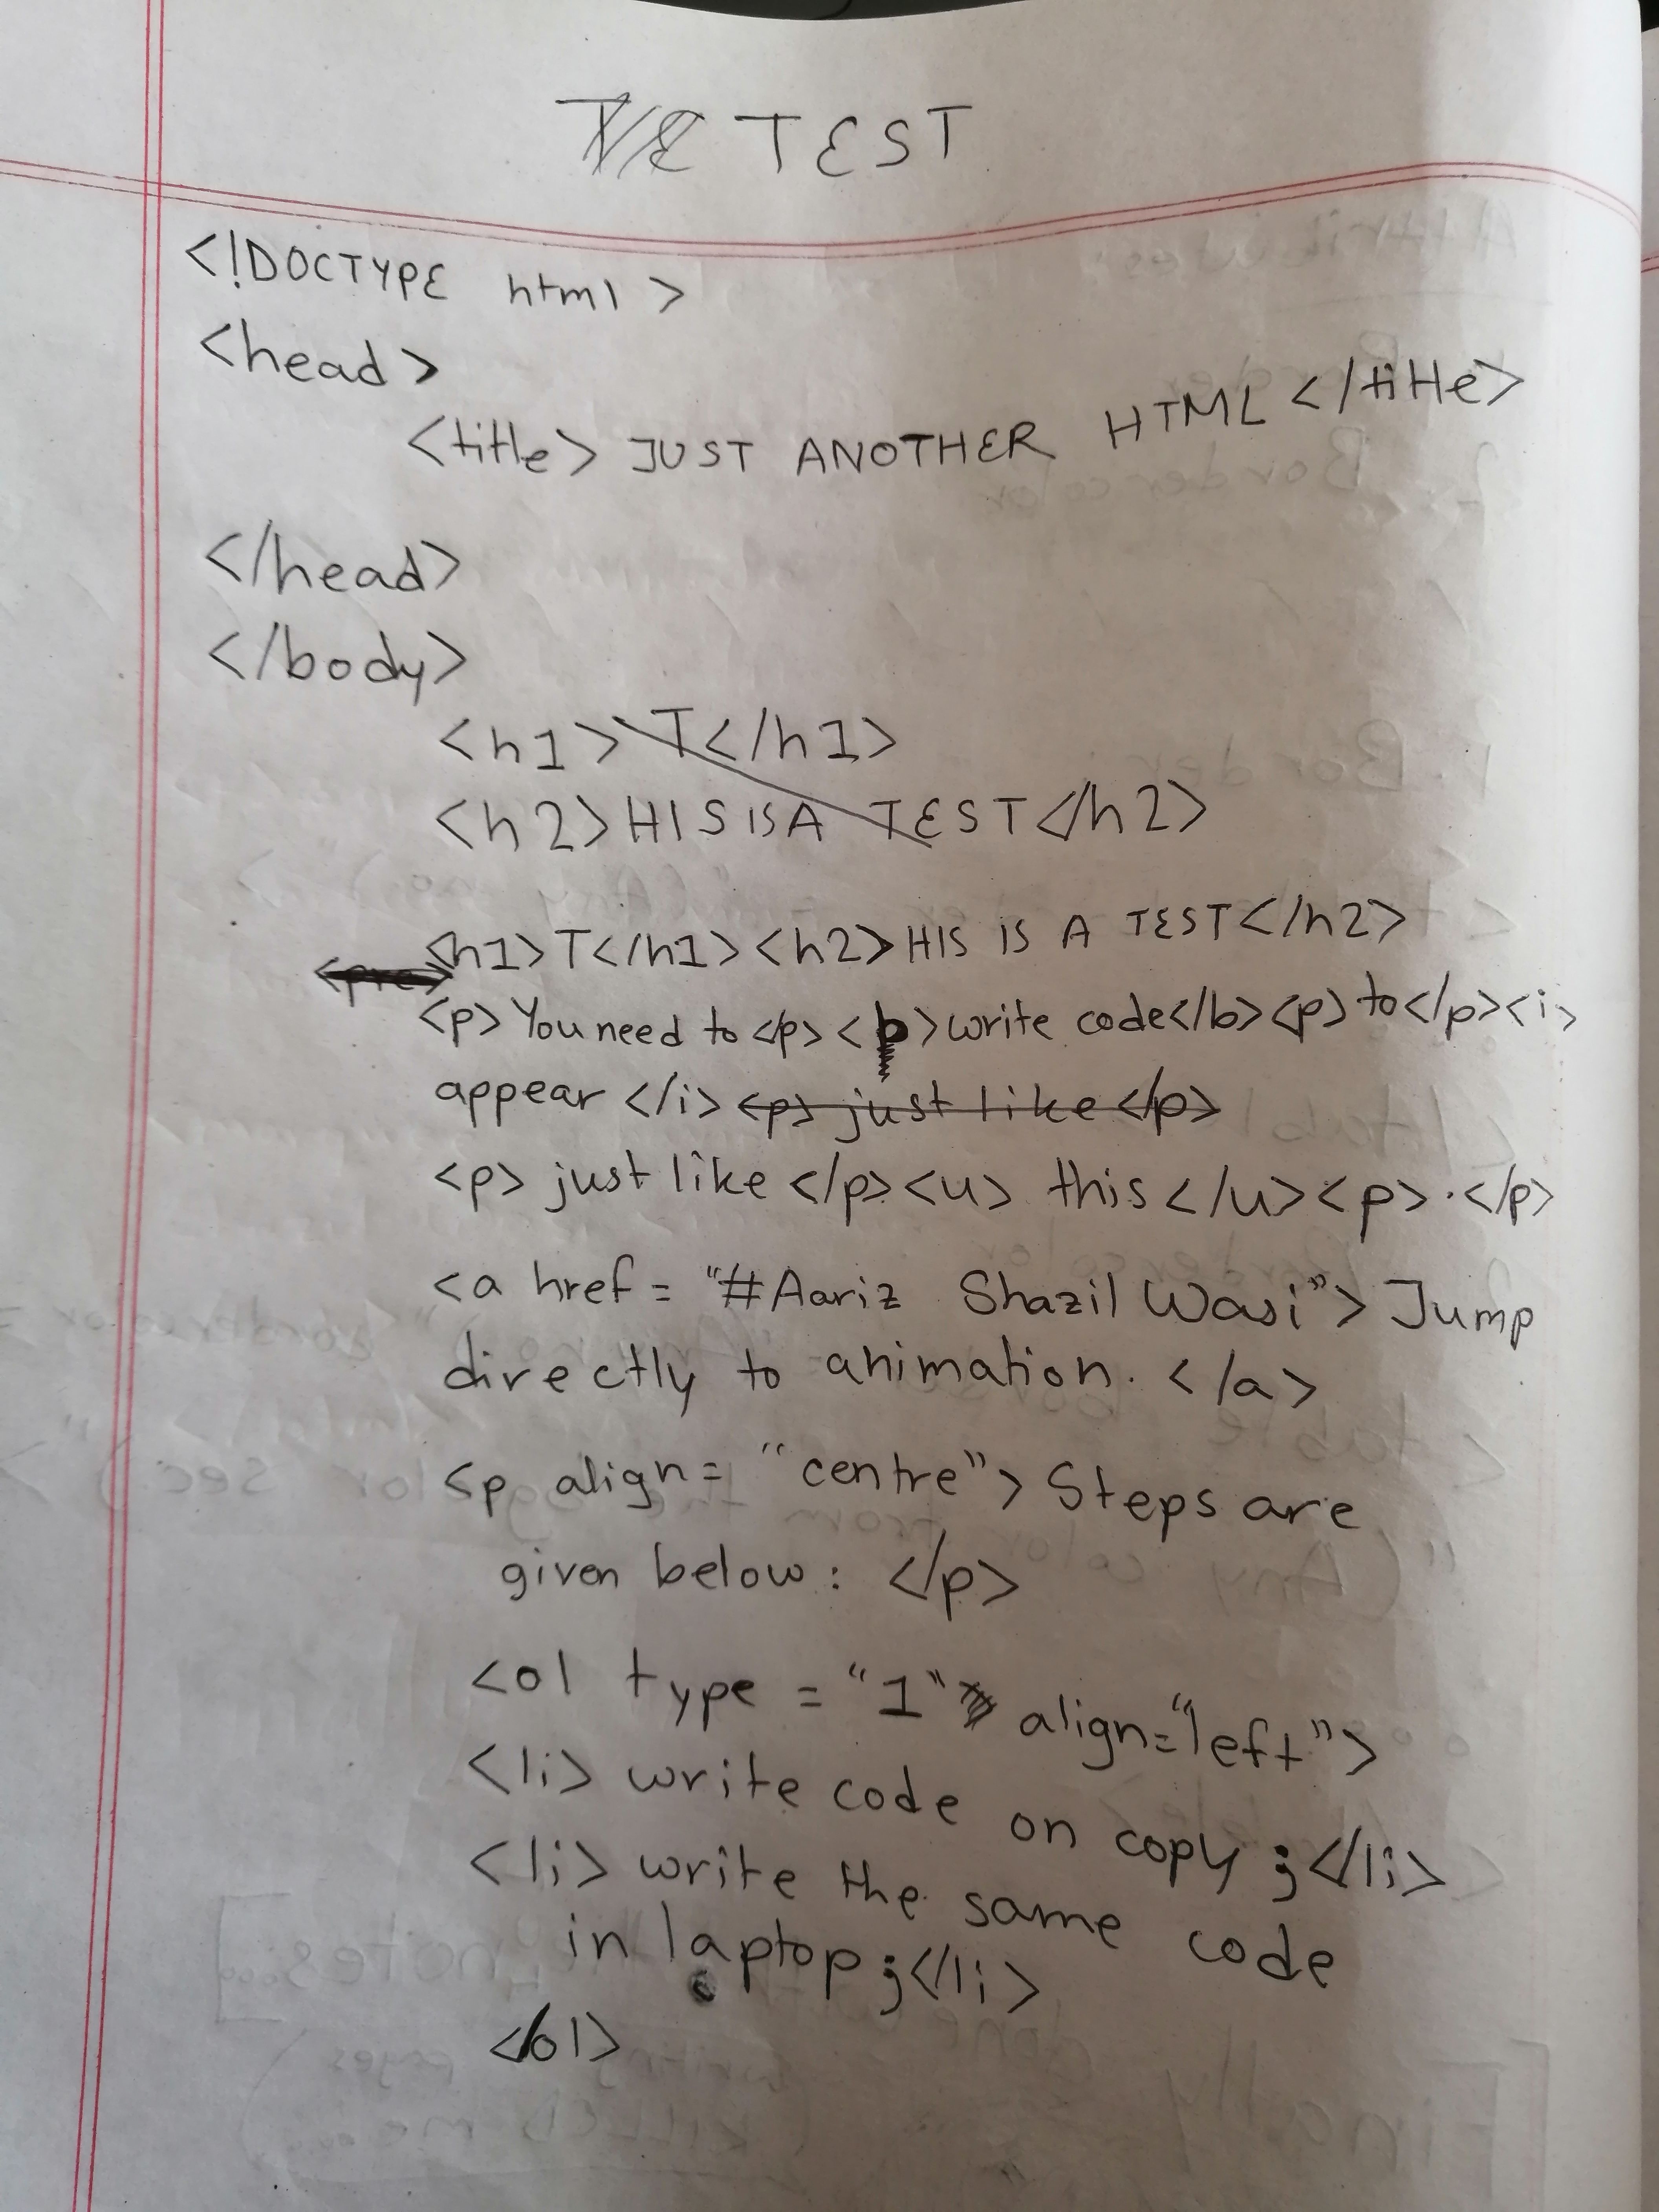 TEST
<!DOCTYPE html>
<head>
<title> JUST ANOTHER HTML </title>
</head>
</body>
<h1> T</h1>
<h2>HIS IS A TEST</h2>
<h1>T</h1><h2>HIS IS A TEST</h2>
<pre>
<p>You need to </p><b>write code</b><p>to</p><i>
appear </i><p> just like </p>
<p> just like </p><u> this </u><p>.</p>
<a href = "#Aariz Shazil Wasi"> Jump
directly to animation. </a>
<p align = "centre"> Steps are
given below : </p>
<ol type = "1" align="left">
<li> write code on copy ;</li>
<li> write the same code
in laptop ;</li>
</ol>